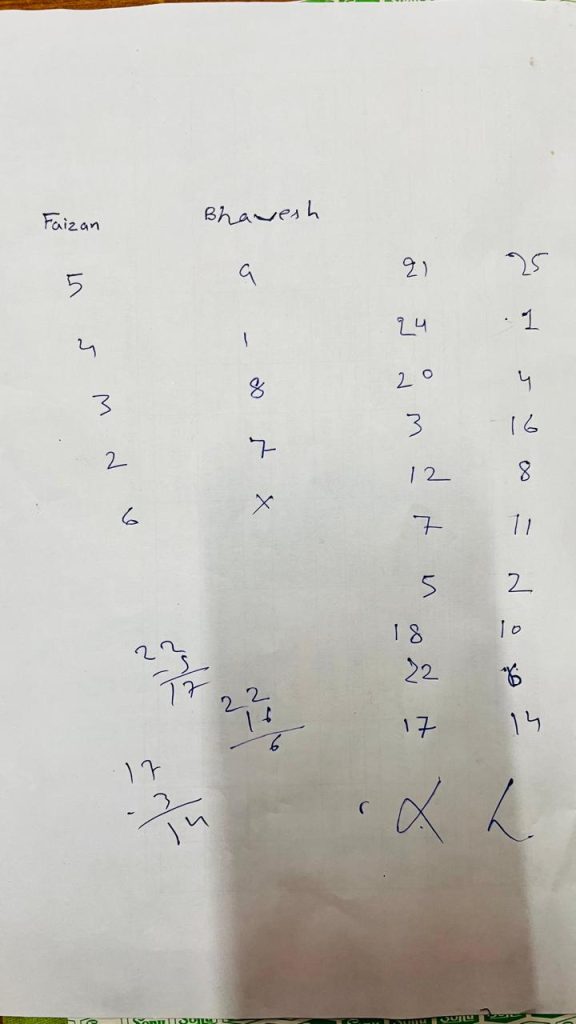 Faizan Bhavesh
5 9 21 25
4 1 24 1
3 8 20 4
2 7 3 16
6 X 12 8
7 11
5 2
18 10
22 6
17 14
22
- 5
17
22
16
6
17
- 3
14